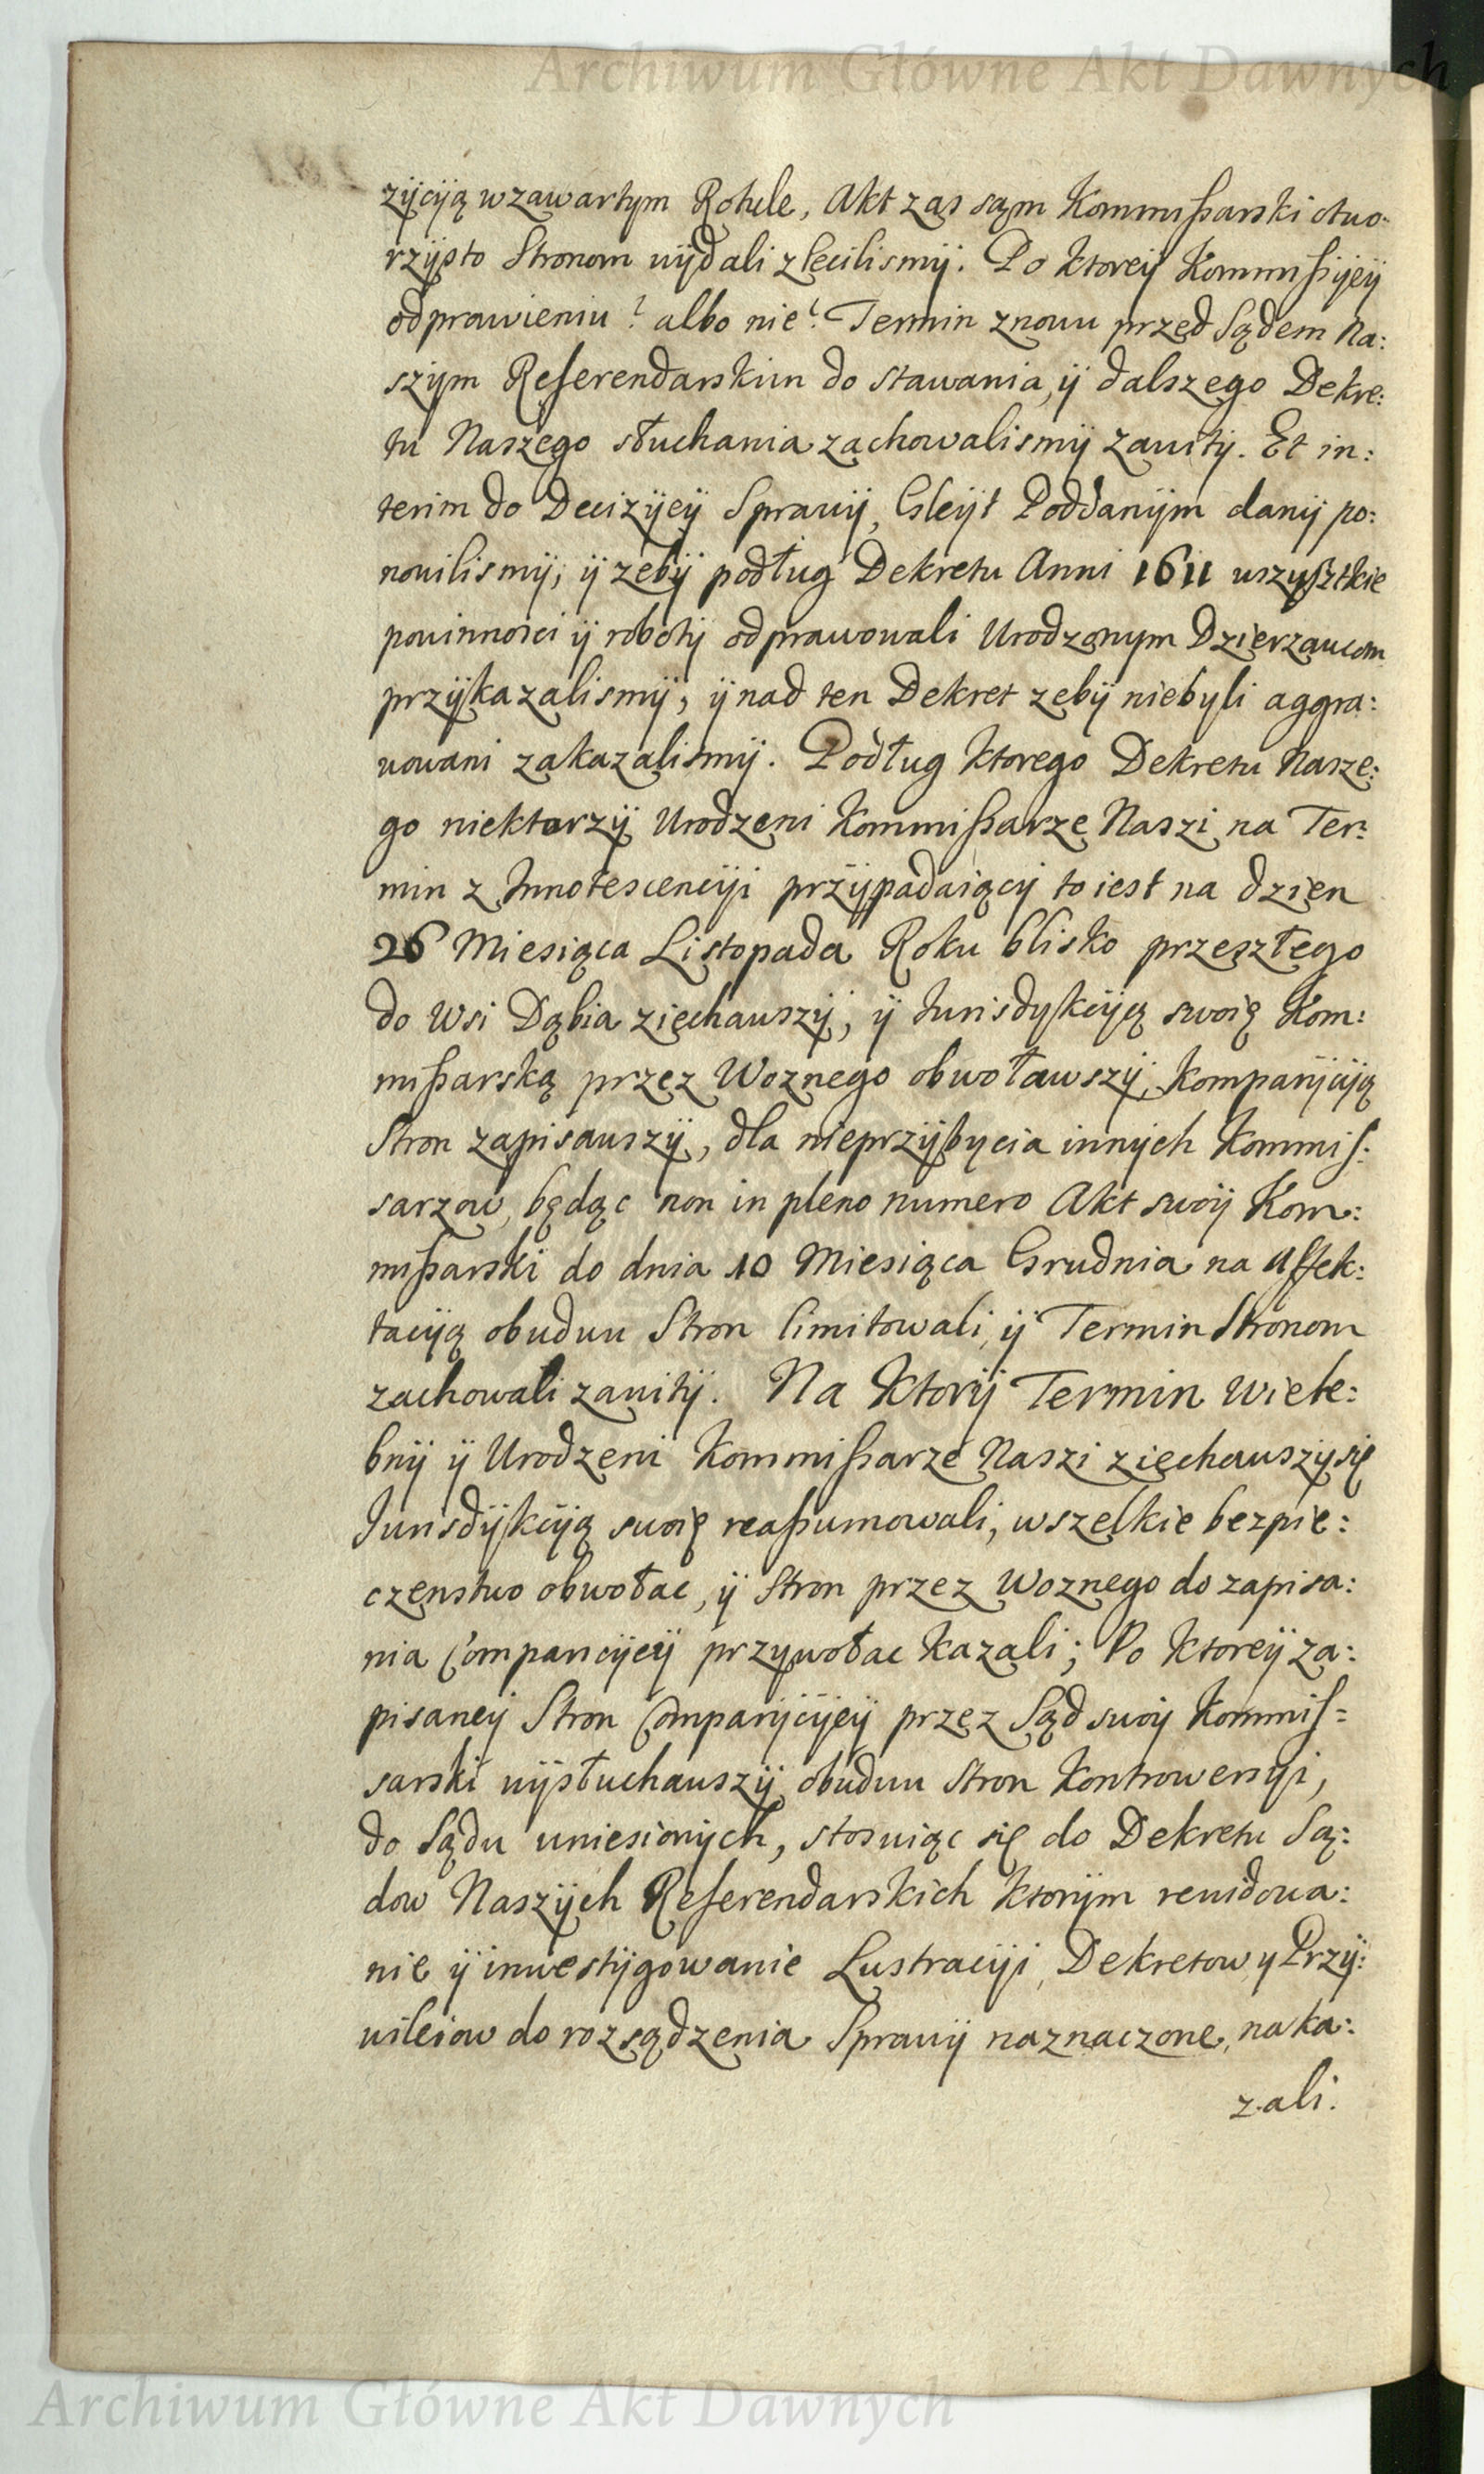 Archiwum Główne Akt Dawnych
zyicyią w zawartym Rotule, Akt zas sąm Kommissarski otwo-
rzysto Stronom wydali zlecilismy. Po ktorey Kommissyiey
odprawieniu? albo nie? Termin znowu przed Sądem Na:
szym Referendarskim do stawania, y dalszego Dekre:
tu Naszego słuchania zachowalismy zawity. Et in:
terim do Decizyey Sprawy, Gleyt Poddanym dany po:
nowilismy, y zeby podług Dekretu Anni 1611 wszysztkie
powinnosci y roboty odprawowali Urodzonym Dzierzawcom
przykazalismy, y nad ten Dekret zeby niebyli aggra:
wowani zakazalismy. Podług ktorego Dekretu Nasze:
go niektorzy Urodzeni Kommissarze Naszi na Ter:
min z Innotescencyi przypadaiący to iest na dzien
26 Miesiąca Listopada Roku blisko przeszłego
do Wsi Dąbia ziechawszy, y Iurisdykcyą swoię Kom:
missarską przez Woznego obwoławszy, Kompanycyą
Stron zapisawszy, dla nieprzybycia innych Kommis:
sarzow, będąc non in pleno numero Akt swoy Kom:
missarski do dnia 10 Miesiąca Grudnia na Affek:
tacyą obudwu Stron limitowali, y Termin Stronom
zachowali zawity. Na Ktory Termin Wiele:
bny y Urodzeni Kommissarze Naszi ziechawszy się
Iurisdykcyą swoię reassumowali, wszelkie bezpie:
czenstwo obwołac, y Stron przez Woznego do zapisa:
nia Comparicyey przywołac kazali; Po Ktorey za:
pisaney Stron Comparycyey przez Sąd swoy Kommis=
sarski wysłuchawszy obudwu Stron Kontrowersyi,
do Sądu wniesionych, stosuiąc się do Dekretu Są:
dow Naszych Referendarskich Ktorym rewidowa:
nie y inwestygowanie Lustracyi, Dekretow y Przy:
wileiow do rozsądzenia Sprawy naznaczone, naka:
zali.
Archiwum Główne Akt Dawnych